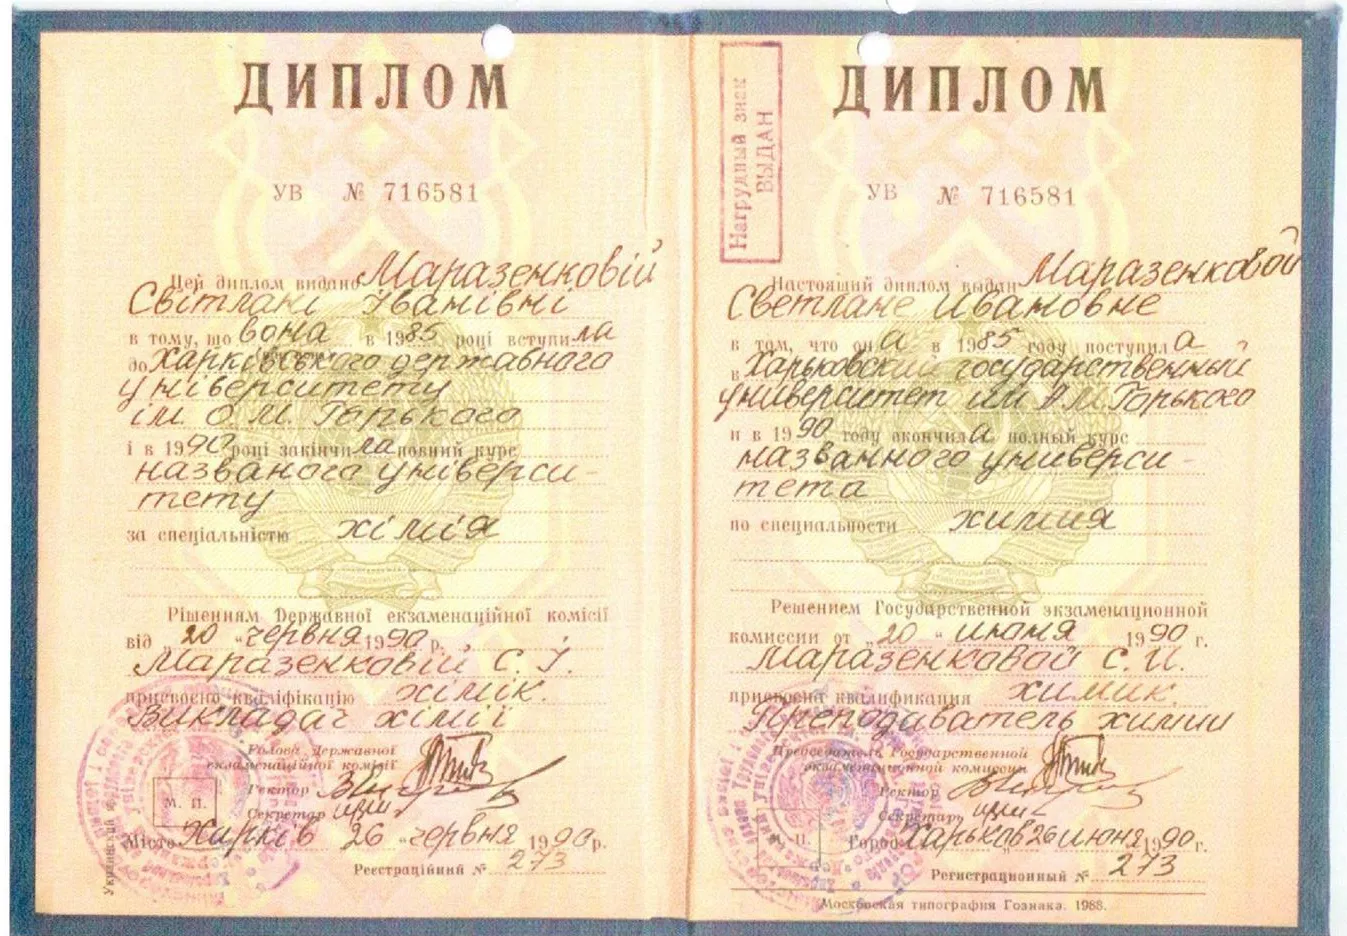 ДИПЛОМ
УВ № 716581
Цей диплом видано Маразенковій
Світлані Іванівні
в тому, що вона в 1985 році вступила
до Харківського державного
університету
ім. О.М. Горького
і в 1990 році закінчила повний курс
названого універси-
тету
за спеціальністю хімія
Рішенням Державної екзаменаційної комісії
від "20" червня 1990 р.
Маразенковій С. І.
присвоєно кваліфікацію хімік.
Викладач хімії
Голова Державної
екзаменаційної комісії
Ректор
Секретар
М. П.
Місто Харків 26 "червня 1990 р.
Реєстраційний № 273
Український
Нагрудный знак
ВЫДАН
ДИПЛОМ
УВ № 716581
Настоящий диплом выдан Маразенковой
Светлане Ивановне
в том, что она в 1985 году поступила
в Харьковский государственный
университет им А М. Горького
и в 1990 году окончила полный курс
названного универси-
тета
по специальности химия
Решением Государственной экзаменационной
комиссии от "20" июня 1990 г.
Маразенковой С. И.
присвоена квалификация химик.
Преподаватель химии
Председатель Государственной
экзаменационной комиссии
Ректор
Секретарь
М. П.
Город Харьков "26 июня 1990 г.
Регистрационный № 273
Московская типография Гознака. 1988.